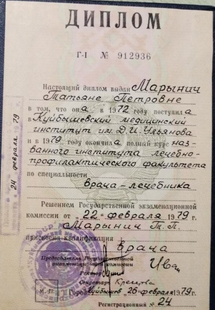 ДИПЛОМ
Г-I № 912936
Настоящий диплом выдан Марынич
Татьяне Петровне
в том, что она в 1972 году поступила
в Куйбышевский медицинский
институт им. Д.И. Ульянова
и в 1979 году окончила полный курс
названного института лечебно-
профилактического факультета
по специальности
Врача-лечебника
Решением Государственной экзаменационной
комиссии от 22 февраля 1979 г.
Марынич Т.П.
присвоена квалификация
Врача
Председатель Государственной
Ректор
Секретарь
Город Куйбышев 26 февраля 1979 г.
Регистрационный № 24
24 февраля 79 г.